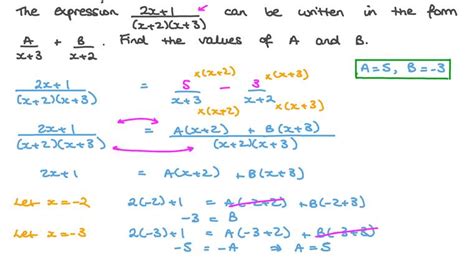 The expression (2x+1)/((x+2)(x+3)) can be written in the form
A/(x+3) + B/(x+2). Find the values of A and B.
A=5, B=-3
(2x+1)/((x+2)(x+3)) = 5/(x+3) ×(x+2) ×(x+2) - 3/(x+2) ×(x+3) ×(x+3)
(2x+1)/((x+2)(x+3)) = (A(x+2) + B(x+3))/((x+2)(x+3))
2x+1 = A(x+2) + B(x+3)
Let x=-2 2(-2)+1 = A(-2+2) + B(-2+3)
-3 = B
Let x=-3 2(-3)+1 = A(-3+2) + B(-3+3)
-5 = -A ⇒ A=5